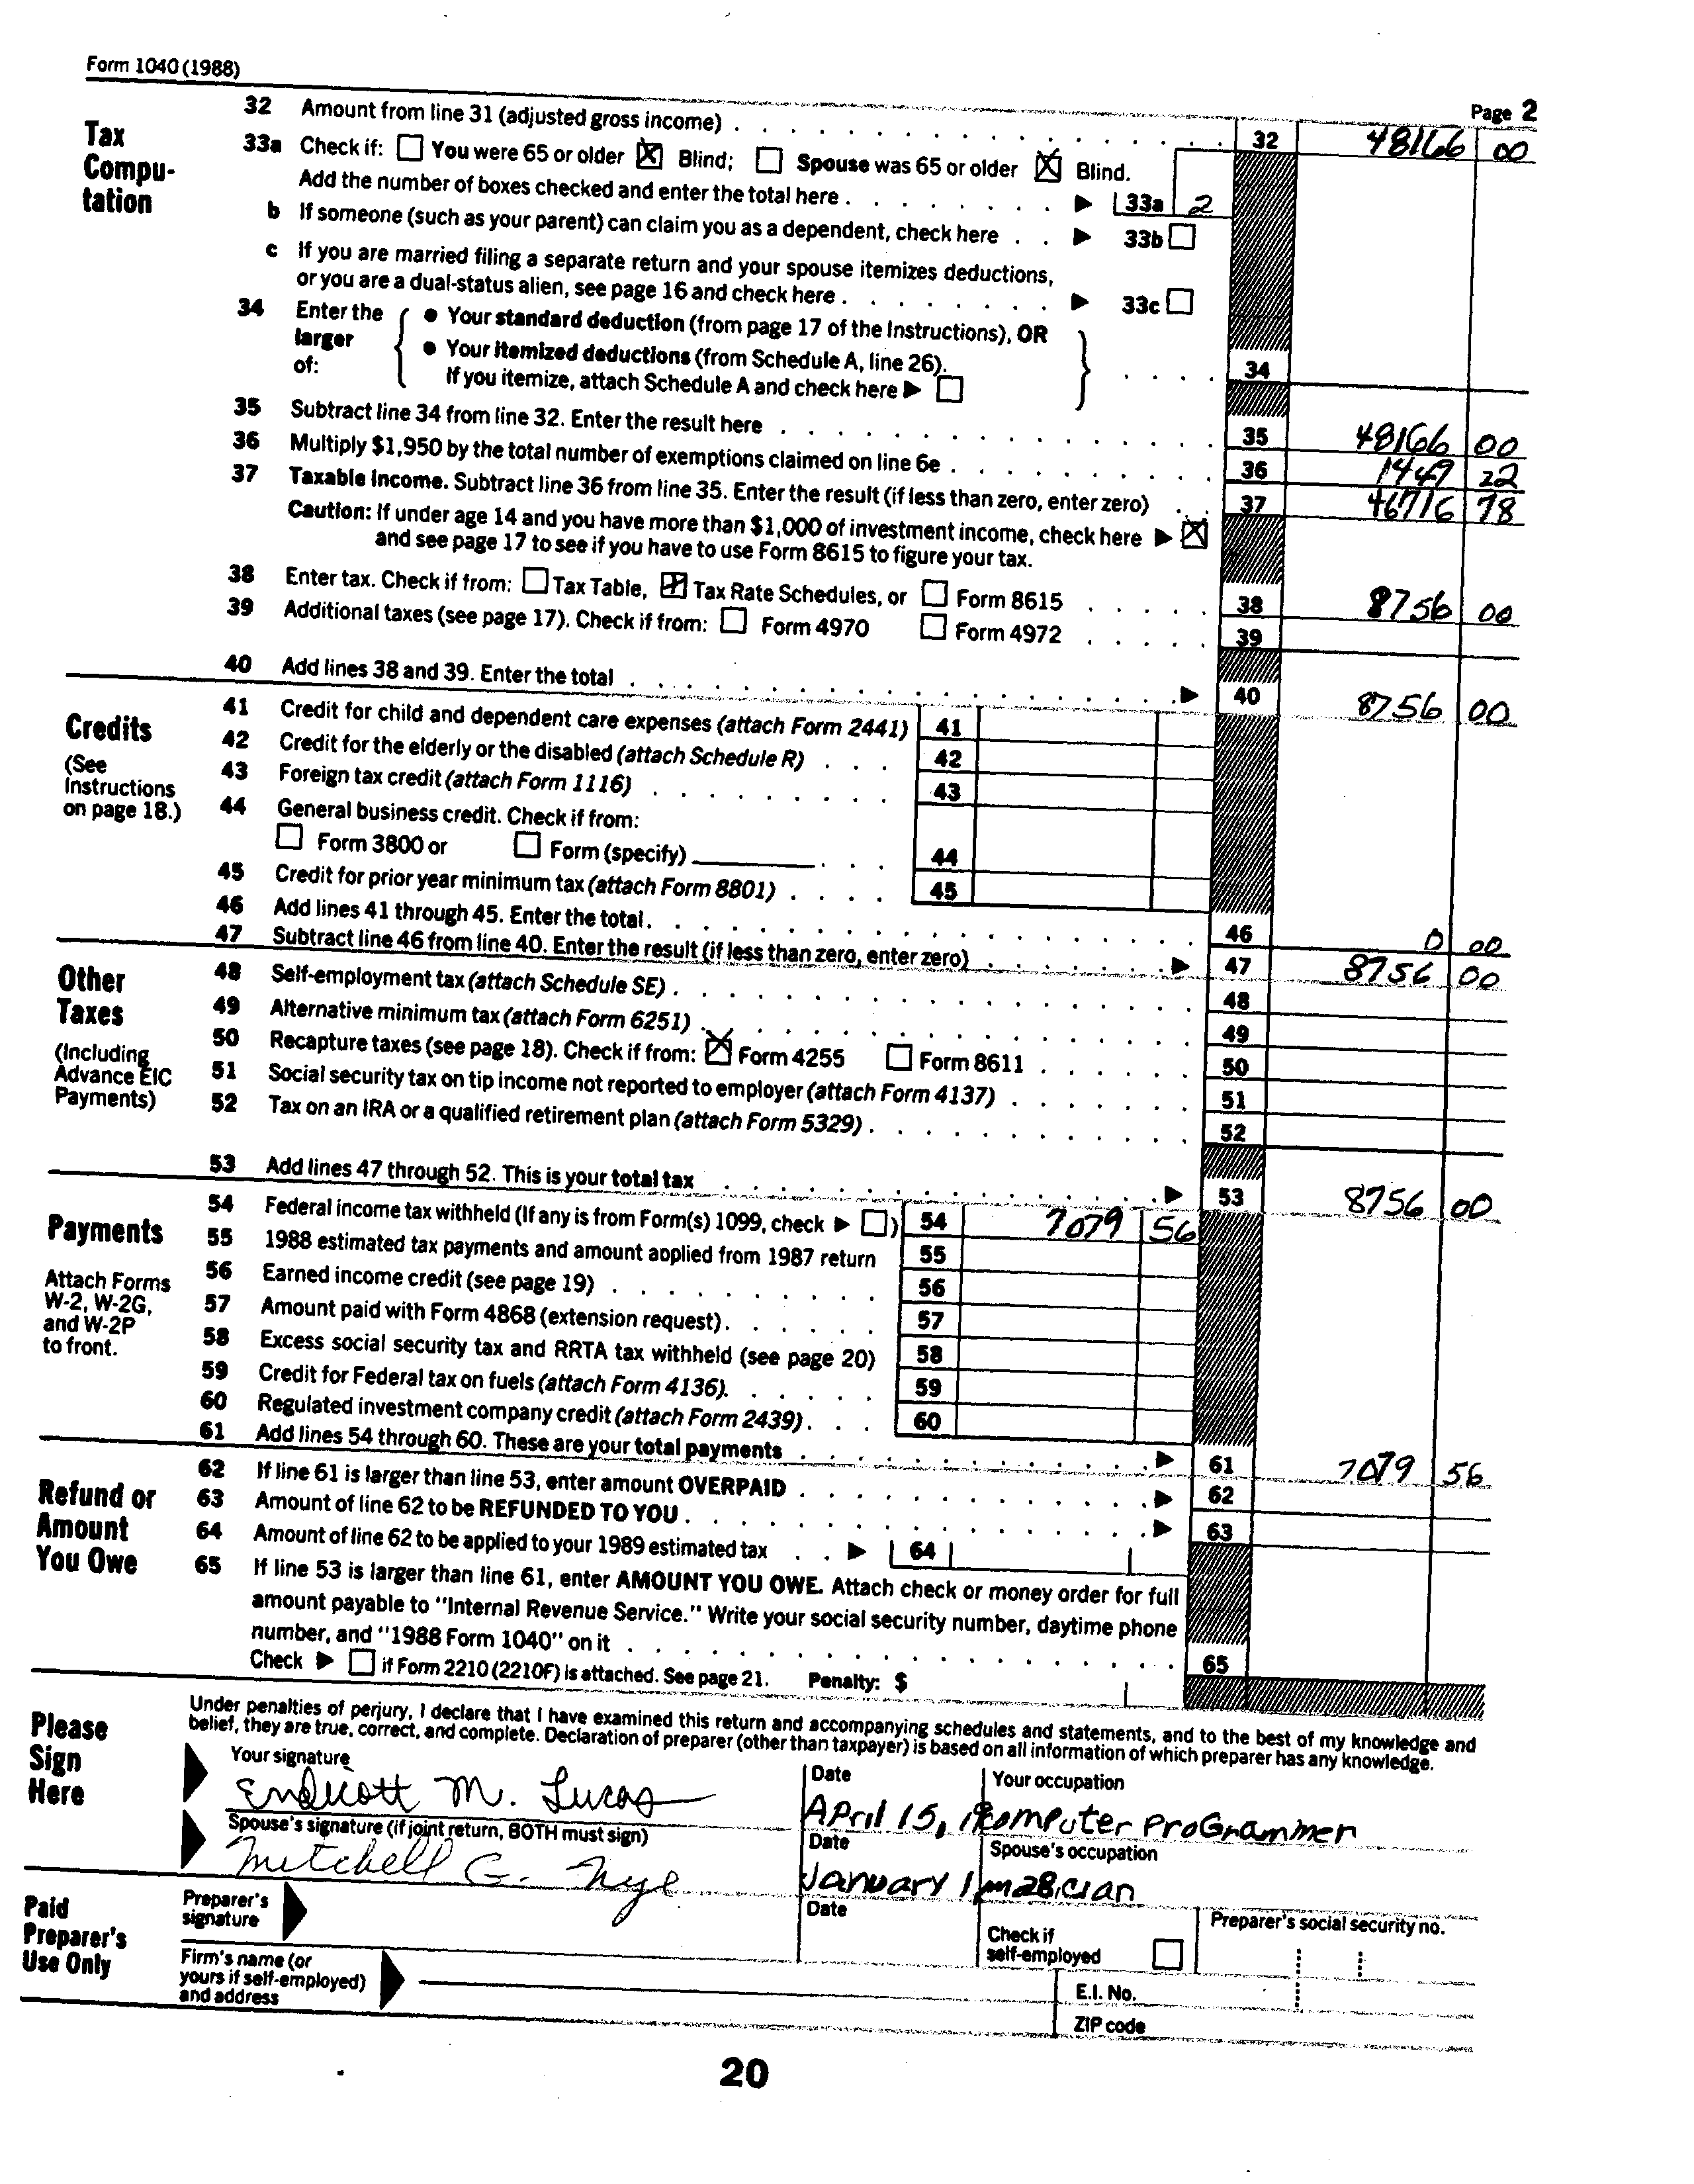 Form 1040 (1988)
Page 2
Tax Compu-tation
32 Amount from line 31 (adjusted gross income) . 32 48166 00
33a Check if: You were 65 or older Blind; Spouse was 65 or older Blind.
Add the number of boxes checked and enter the total here . 33a 2
b If someone (such as your parent) can claim you as a dependent, check here . . 33b
c If you are married filing a separate return and your spouse itemizes deductions,
or you are a dual-status alien, see page 16 and check here . 33c
34 Enter the larger of:
• Your standard deduction (from page 17 of the Instructions), OR
• Your itemized deductions (from Schedule A, line 26).
If you itemize, attach Schedule A and check here
34
35 Subtract line 34 from line 32. Enter the result here 35 48166 00
36 Multiply $1,950 by the total number of exemptions claimed on line 6e . 36 1449 22
37 Taxable income. Subtract line 36 from line 35. Enter the result (if less than zero, enter zero) 37 46716 78
Caution: If under age 14 and you have more than $1,000 of investment income, check here
and see page 17 to see if you have to use Form 8615 to figure your tax.
38 Enter tax. Check if from: Tax Table, Tax Rate Schedules, or Form 8615 38 8756 00
39 Additional taxes (see page 17). Check if from: Form 4970 Form 4972 39
40 Add lines 38 and 39. Enter the total 40 8756 00
Credits
(See Instructions on page 18.)
41 Credit for child and dependent care expenses (attach Form 2441) 41
42 Credit for the elderly or the disabled (attach Schedule R) 42
43 Foreign tax credit (attach Form 1116) 43
44 General business credit. Check if from:
Form 3800 or Form (specify) 44
45 Credit for prior year minimum tax (attach Form 8801) 45
46 Add lines 41 through 45. Enter the total. 46 0 00
47 Subtract line 46 from line 40. Enter the result (if less than zero, enter zero) 47 8756 00
Other Taxes
(Including Advance EIC Payments)
48 Self-employment tax (attach Schedule SE) . 48
49 Alternative minimum tax (attach Form 6251) . 49
50 Recapture taxes (see page 18). Check if from: Form 4255 Form 8611 50
51 Social security tax on tip income not reported to employer (attach Form 4137) 51
52 Tax on an IRA or a qualified retirement plan (attach Form 5329) . 52
53 Add lines 47 through 52. This is your total tax 53 8756 00
Payments
Attach Forms W-2, W-2G, and W-2P to front.
54 Federal income tax withheld (If any is from Form(s) 1099, check ) 54 7079 56
55 1988 estimated tax payments and amount applied from 1987 return 55
56 Earned income credit (see page 19) 56
57 Amount paid with Form 4868 (extension request) . 57
58 Excess social security tax and RRTA tax withheld (see page 20) 58
59 Credit for Federal tax on fuels (attach Form 4136). 59
60 Regulated investment company credit (attach Form 2439) . 60
61 Add lines 54 through 60. These are your total payments 61 7079 56
Refund or Amount You Owe
62 If line 61 is larger than line 53, enter amount OVERPAID 62
63 Amount of line 62 to be REFUNDED TO YOU . 63
64 Amount of line 62 to be applied to your 1989 estimated tax 64
65 If line 53 is larger than line 61, enter AMOUNT YOU OWE. Attach check or money order for full
amount payable to "Internal Revenue Service." Write your social security number, daytime phone
number, and "1988 Form 1040" on it 65
Check if Form 2210 (2210F) is attached. See page 21. Penalty: $
Please Sign Here
Under penalties of perjury, I declare that I have examined this return and accompanying schedules and statements, and to the best of my knowledge and
belief, they are true, correct, and complete. Declaration of preparer (other than taxpayer) is based on all information of which preparer has any knowledge.
Your signature Date Your occupation
Endicott M. Lucas April 15, Computer Programmer
Spouse's signature (if joint return, BOTH must sign) Date Spouse's occupation
Mitchell G. Nye January 1, magician
Paid Preparer's Use Only
Preparer's signature Date Check if self-employed Preparer's social security no.
Firm's name (or yours if self-employed) and address E.I. No.
ZIP code
20